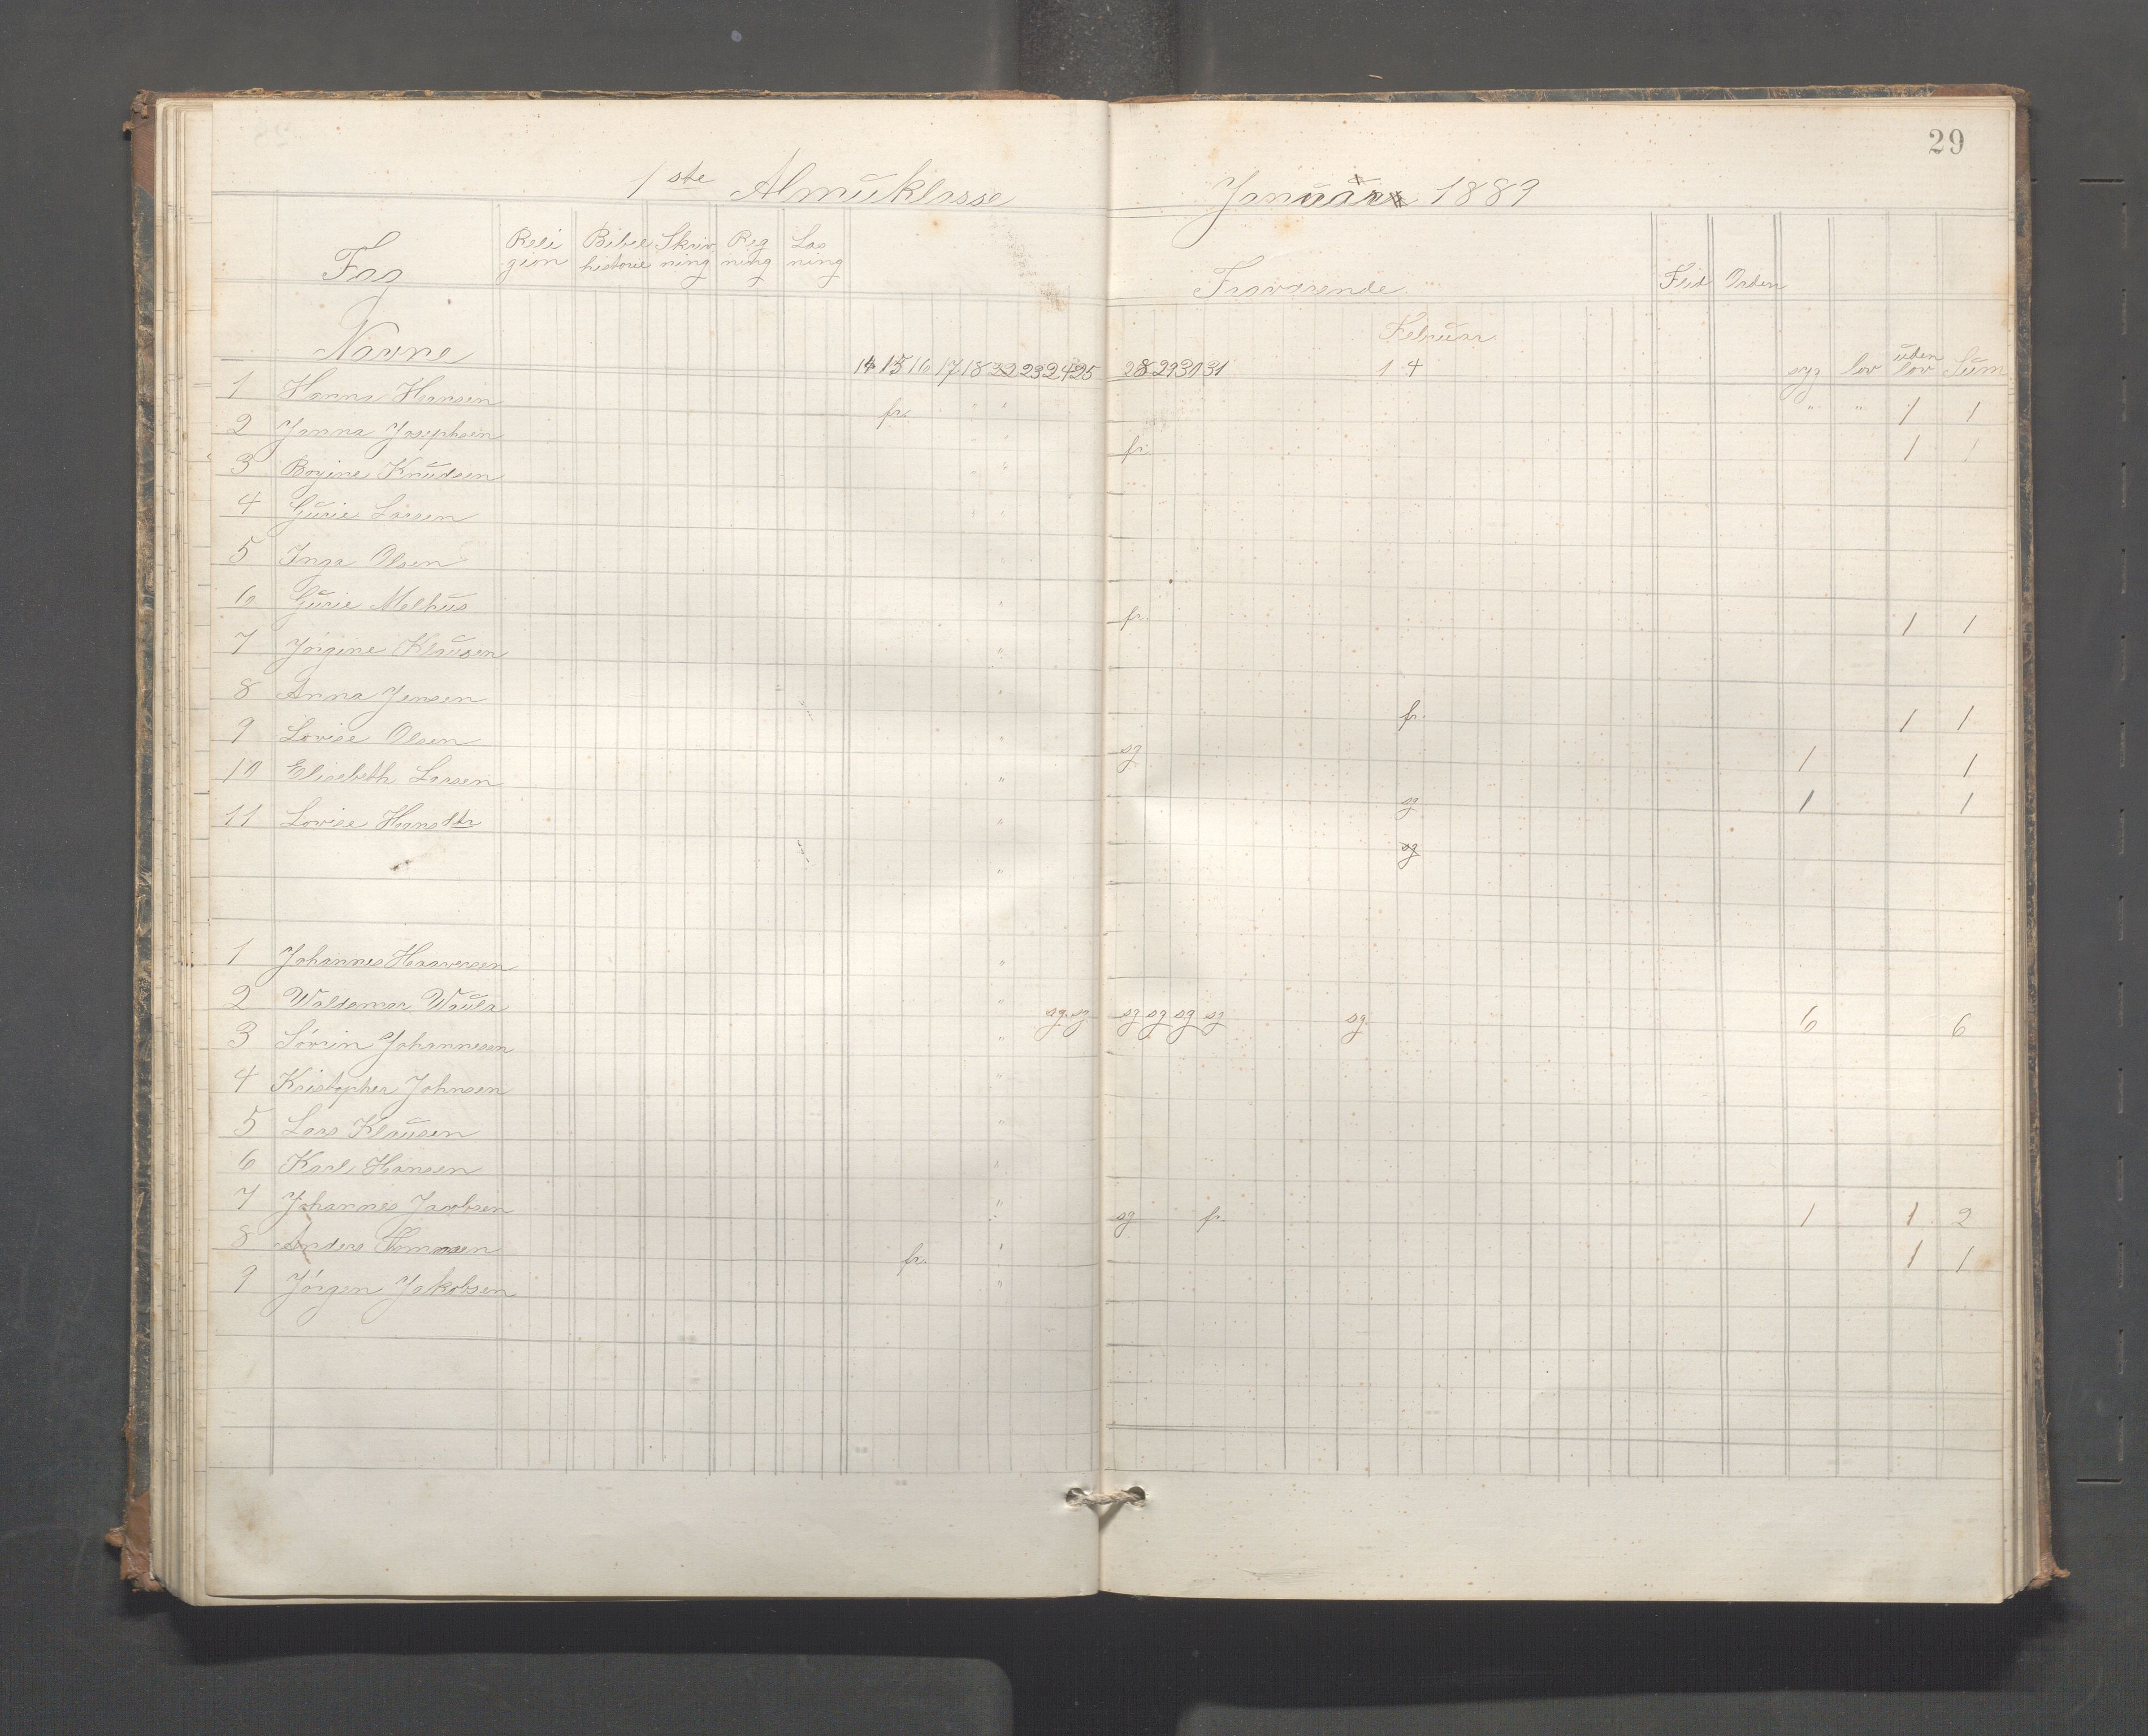 29
1 ste Almuklasse Januar 1889
Fag Reli gion Bibel historie Skriv ning Reg ning Læs ning Fraværende Flid Orden
Februar
Navne 14 15 16 17 18 22 23 24 25 28 29 30 31 1 4 syg lov uden lov Sum
1 Hanna Hansen fr. " " 1 1
2 Janna Josephsen fr. 1 1
3 Bogine Knudsen
4 Gurie Larsen
5 Inga Olsen
6 Gurie Melhus fr. 1 1
7 Jørgine Klausen
8 Anna Jensen fr. 1 1
9 Lovise Olsen sg 1 1
10 Elisebeth Larsen sg 1 1
11 Lovise Hansdtr sg
1 Johannes Haaversen
2 Waldemar Waula sg. sg sg sg sg sg sg. 6 6
3 Sørrin Johannesen
4 Kristopher Johnsen
5 Lars Klausen
6 Karl Hansen
7 Johannes Jacobsen sg fr. 1 1 2
8 Anders Tommesen fr. 1 1
9 Jørgen Jakobsen